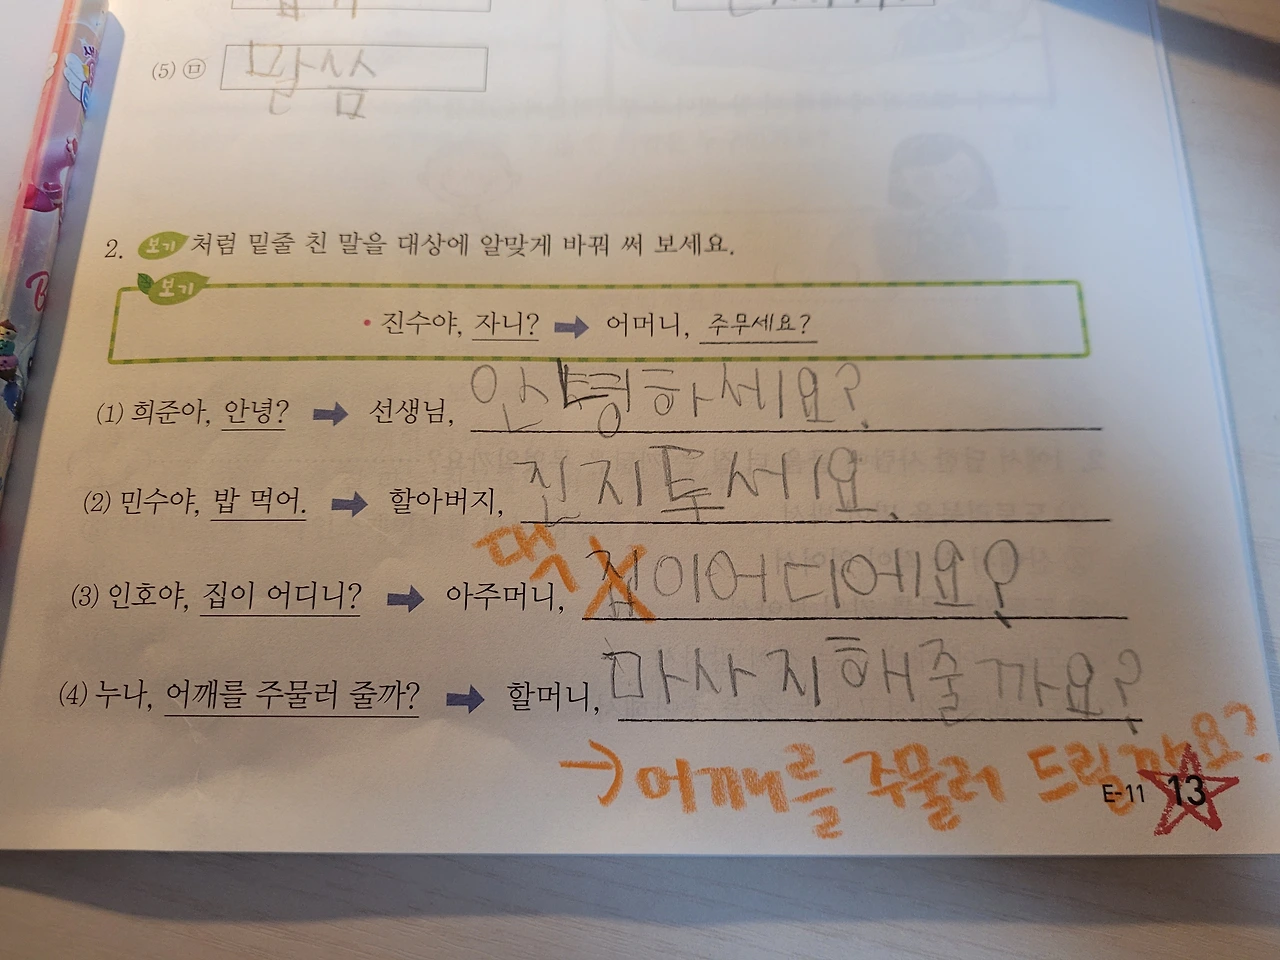 (5) ㅁ 말씀
2. 보기 처럼 밑줄 친 말을 대상에 알맞게 바꿔 써 보세요.
보기
• 진수야, 자니? ➡ 어머니, 주무세요?
(1) 희준아, 안녕? ➡ 선생님, 안녕하세요?
(2) 민수야, 밥 먹어. ➡ 할아버지, 진지드세요.
댁
(3) 인호야, 집이 어디니? ➡ 아주머니, 집이어디에요?
(4) 누나, 어깨를 주물러 줄까? ➡ 할머니, 마사지해줄까요?
→ 어깨를 주물러 드릴까요?
E-11 13